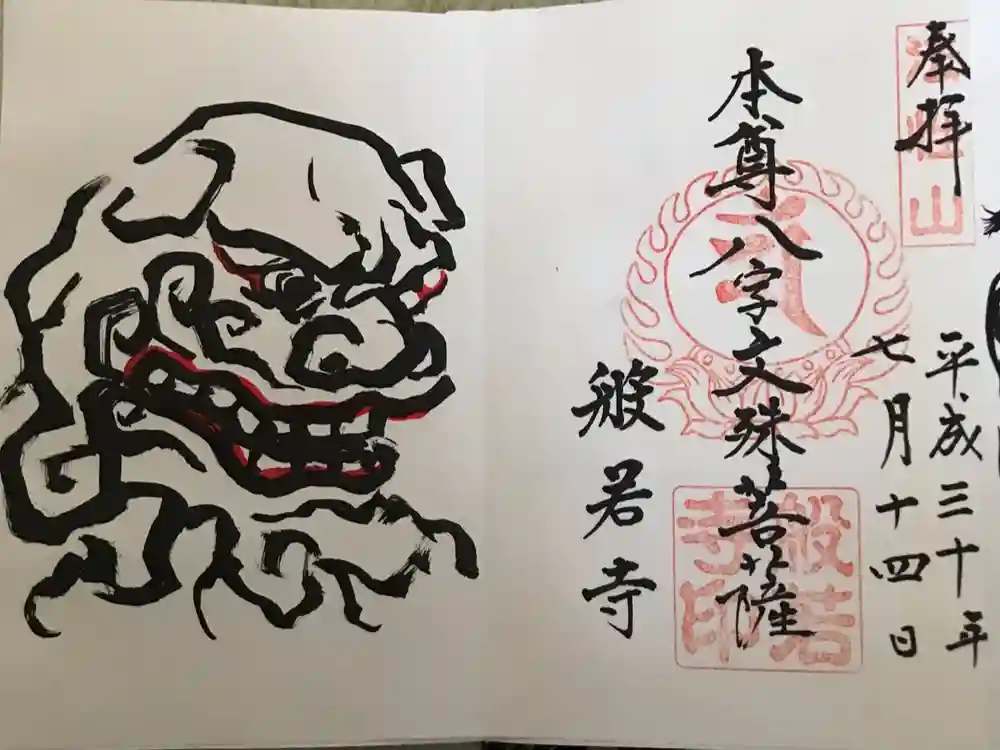 奉拝
法性山
平成三十年
七月十四日
本尊八字文殊菩薩
般若寺
般若
寺印